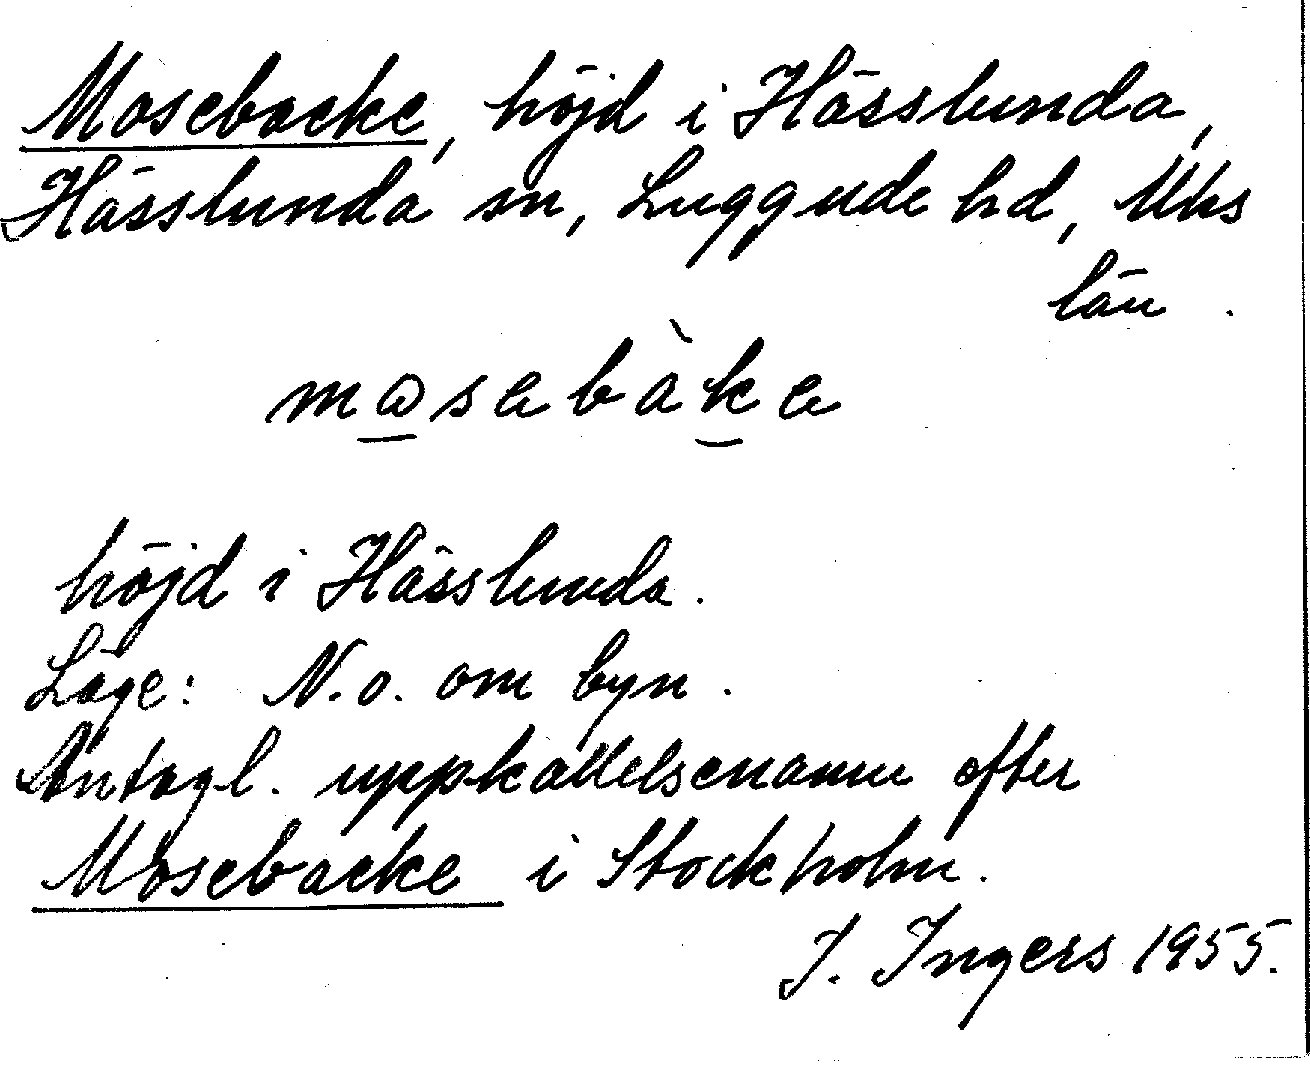 Mosebacke, höjd i Hässlunda,
Hässlunda sn, Luggude hd, Mhs
län.
mωsebàke
höjd i Hässlunda.
Läge: N.o. om byn.
Antagl. uppkallelsenamn efter
Mosebacke i Stockholm.
I. Ingers 1955.